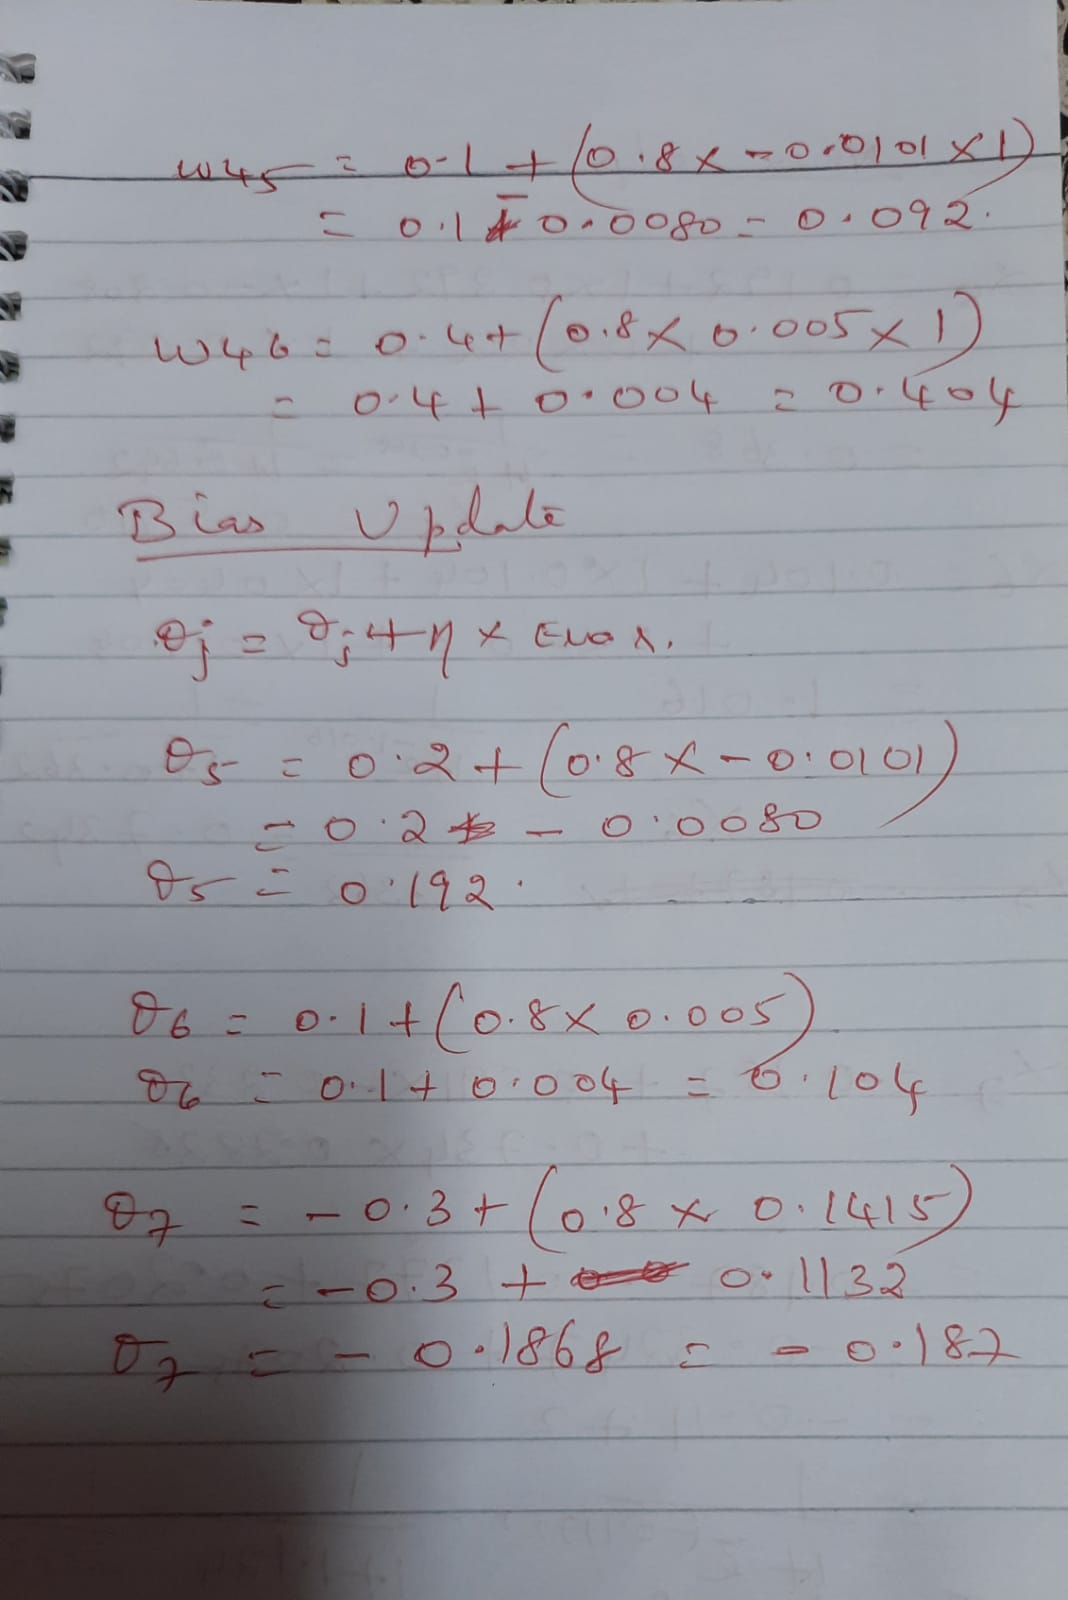 w45 = 0.1 + (0.8 × -0.0101 × 1)
= 0.1 - 0.0080 = 0.092.
w46 = 0.4 + (0.8 × 0.005 × 1)
= 0.4 + 0.004 = 0.404
Bias Update
θj = θj + η × Error.
θ5 = 0.2 + (0.8 × -0.0101)
= 0.2 - 0.0080
θ5 = 0.192.
θ6 = 0.1 + (0.8 × 0.005)
θ6 = 0.1 + 0.004 = 0.104
θ7 = -0.3 + (0.8 × 0.1415)
= -0.3 + 0.1132
θ7 = -0.1868 = -0.187